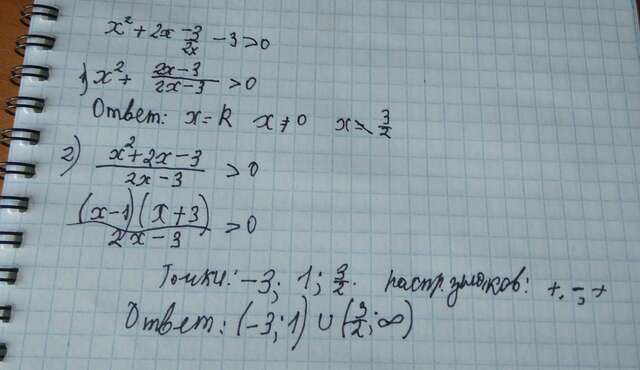 x² + 2x - 3/2x - 3 > 0
1) x² + (2x-3)/(2x-3) > 0
Ответ: x = R x ≠ 0 x = 3/2
2) (x² + 2x - 3)/(2x - 3) > 0
(x-1)(x+3)/(2x-3) > 0
Точки: -3; 1; 3/2. распр. знаков: +, -, +
Ответ: (-3; 1) ∪ (3/2; ∞)